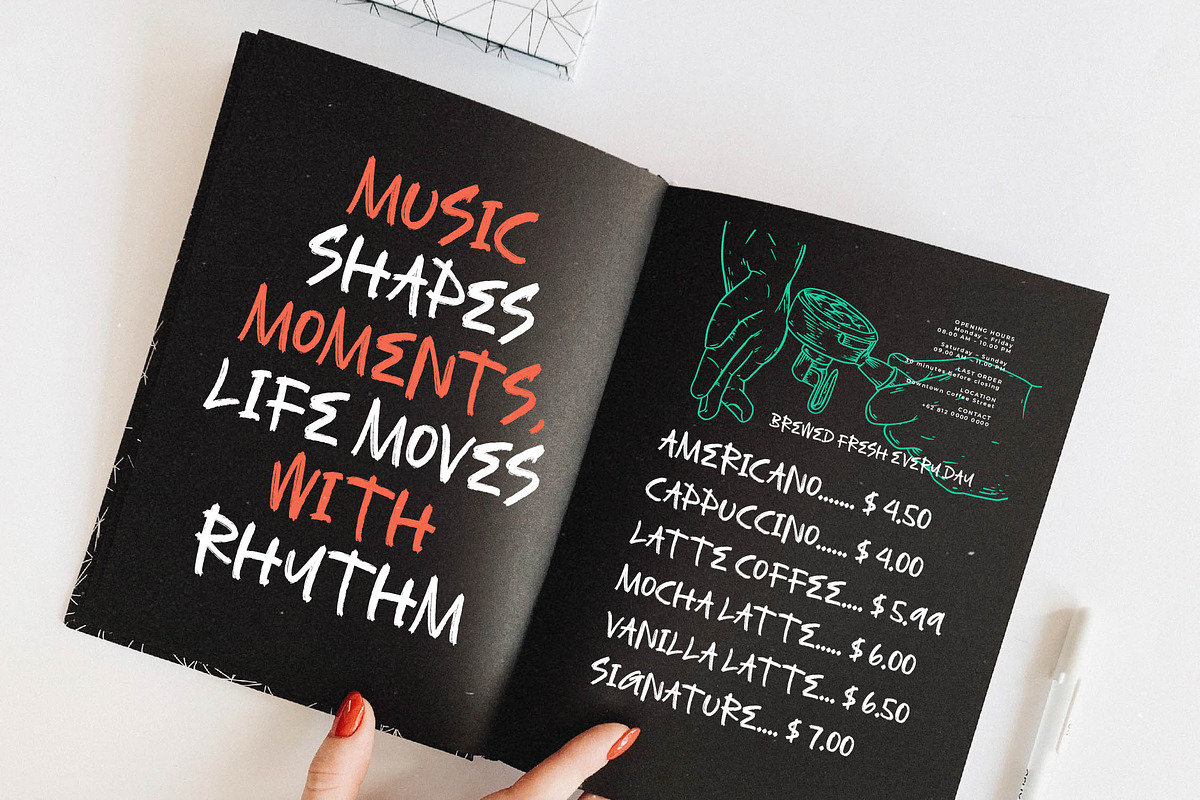 MUSIC
SHAPES
MOMENTS,
LIFE MOVES
WITH
RHYTHM
OPENING HOURS
Monday - Friday
08.00 AM - 10.00 PM
Saturday - Sunday
09.00 AM - 11.00 PM
LAST ORDER
30 minutes before closing
LOCATION
Downtown Coffee Street
CONTACT
+62 812 0000 0000
BREWED FRESH EVERY DAY
AMERICANO....... $ 4.50
CAPPUCCINO...... $ 4.00
LATTE COFFEE.... $ 5.99
MOCHA LATTE..... $ 6.00
VANILLA LATTE... $ 6.50
SIGNATURE.... $ 7.00